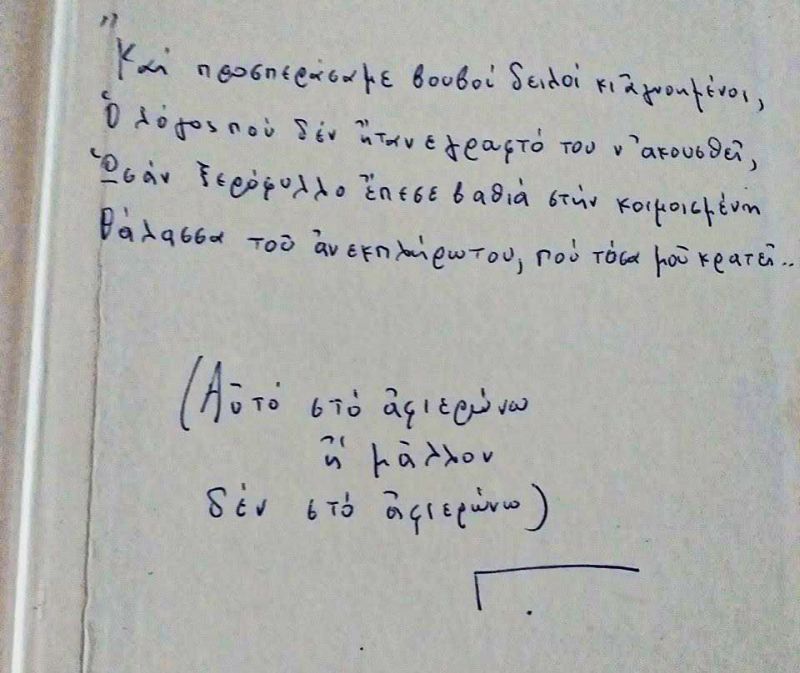 "Καί προσπεράσαμε βουβοί δειλοί κι ἀγνοημένοι,
Ὁ λόγος πού δέν ἤταν εγραφτό του ν' ἀκουσθεῖ,
Ὡσάν ξερόφυλλο ἔπεσε βαθιά στήν κοιμοισμένη
θάλασσα τοῦ ἀνεκπλήρωτου, πού τόσα μοῦ κρατεῖ..
(Αὐτό στό ἀφιερώνω
ἤ μᾶλλον
δέν στό ἀφιερώνω)
Γ.